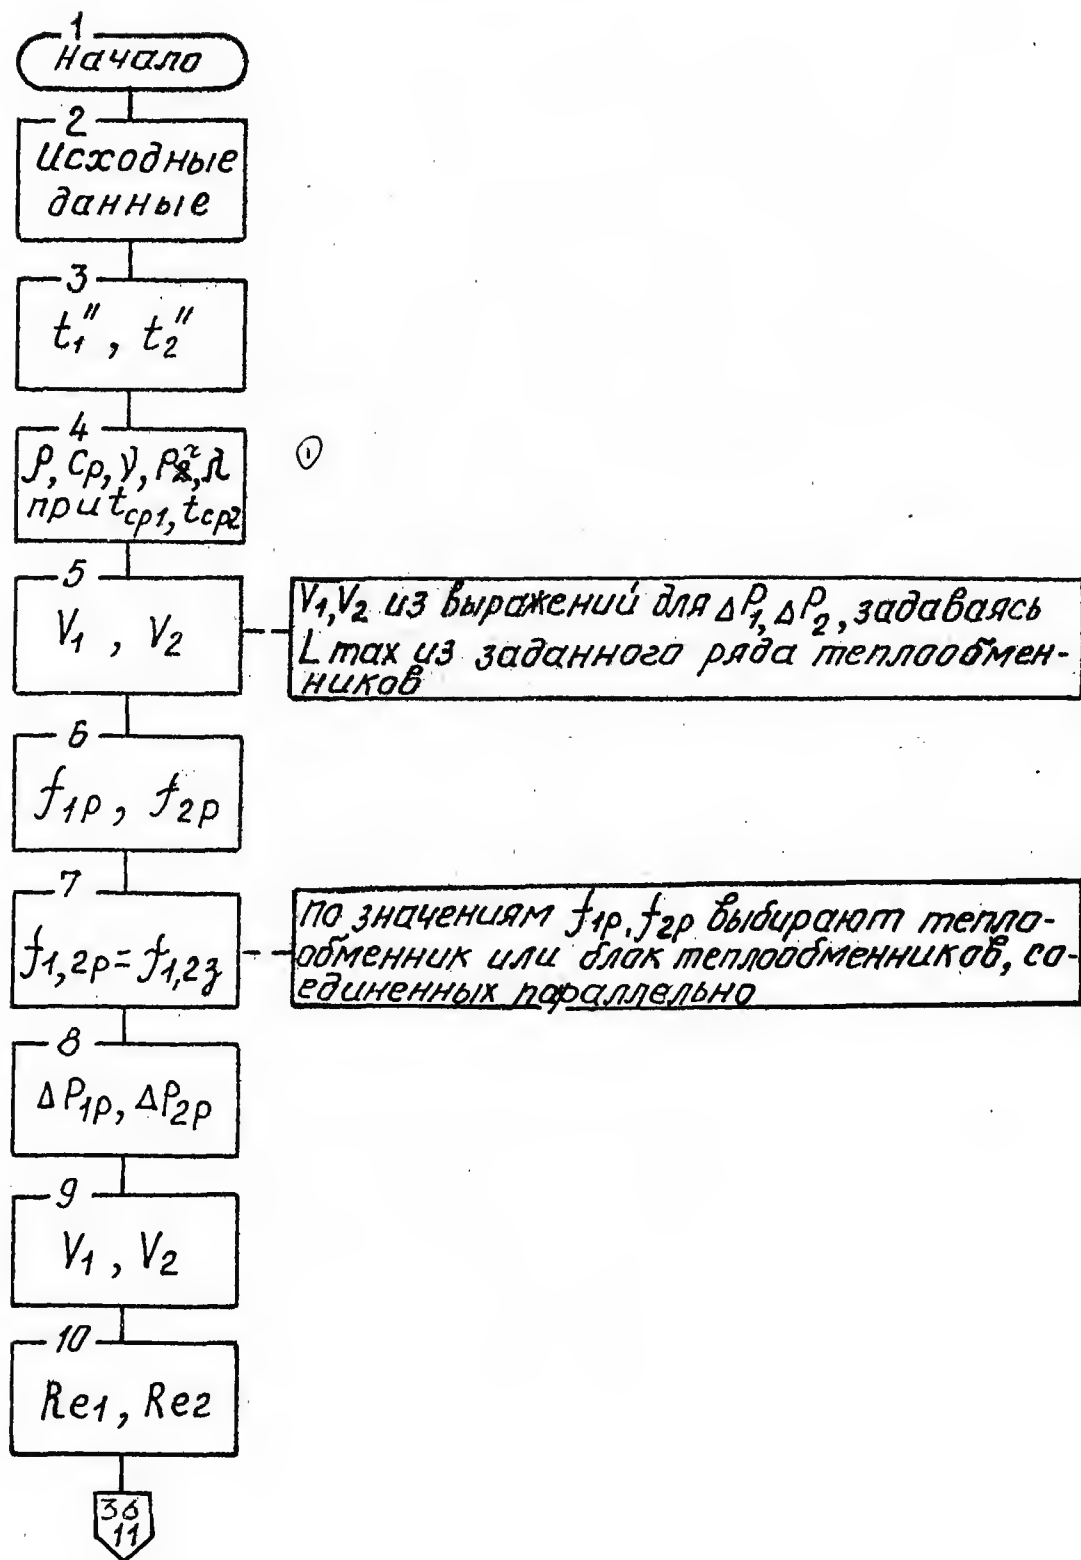 1
Начало
2
Исходные
данные
3
t₁″, t₂″
4
ρ, Cp, ν, Pr, λ
при tср1, tср2
①
5
V₁, V₂
V₁, V₂ из выражений для ΔP₁, ΔP₂, задаваясь
L max из заданного ряда теплообмен-
ников
6
f₁р, f₂р
7
f₁,₂р = f₁,₂з
По значениям f₁р, f₂р выбирают тепло-
обменник или блок теплообменников, со-
единенных параллельно
8
ΔP₁р, ΔP₂р
9
V₁, V₂
10
Re₁, Re₂
36
11